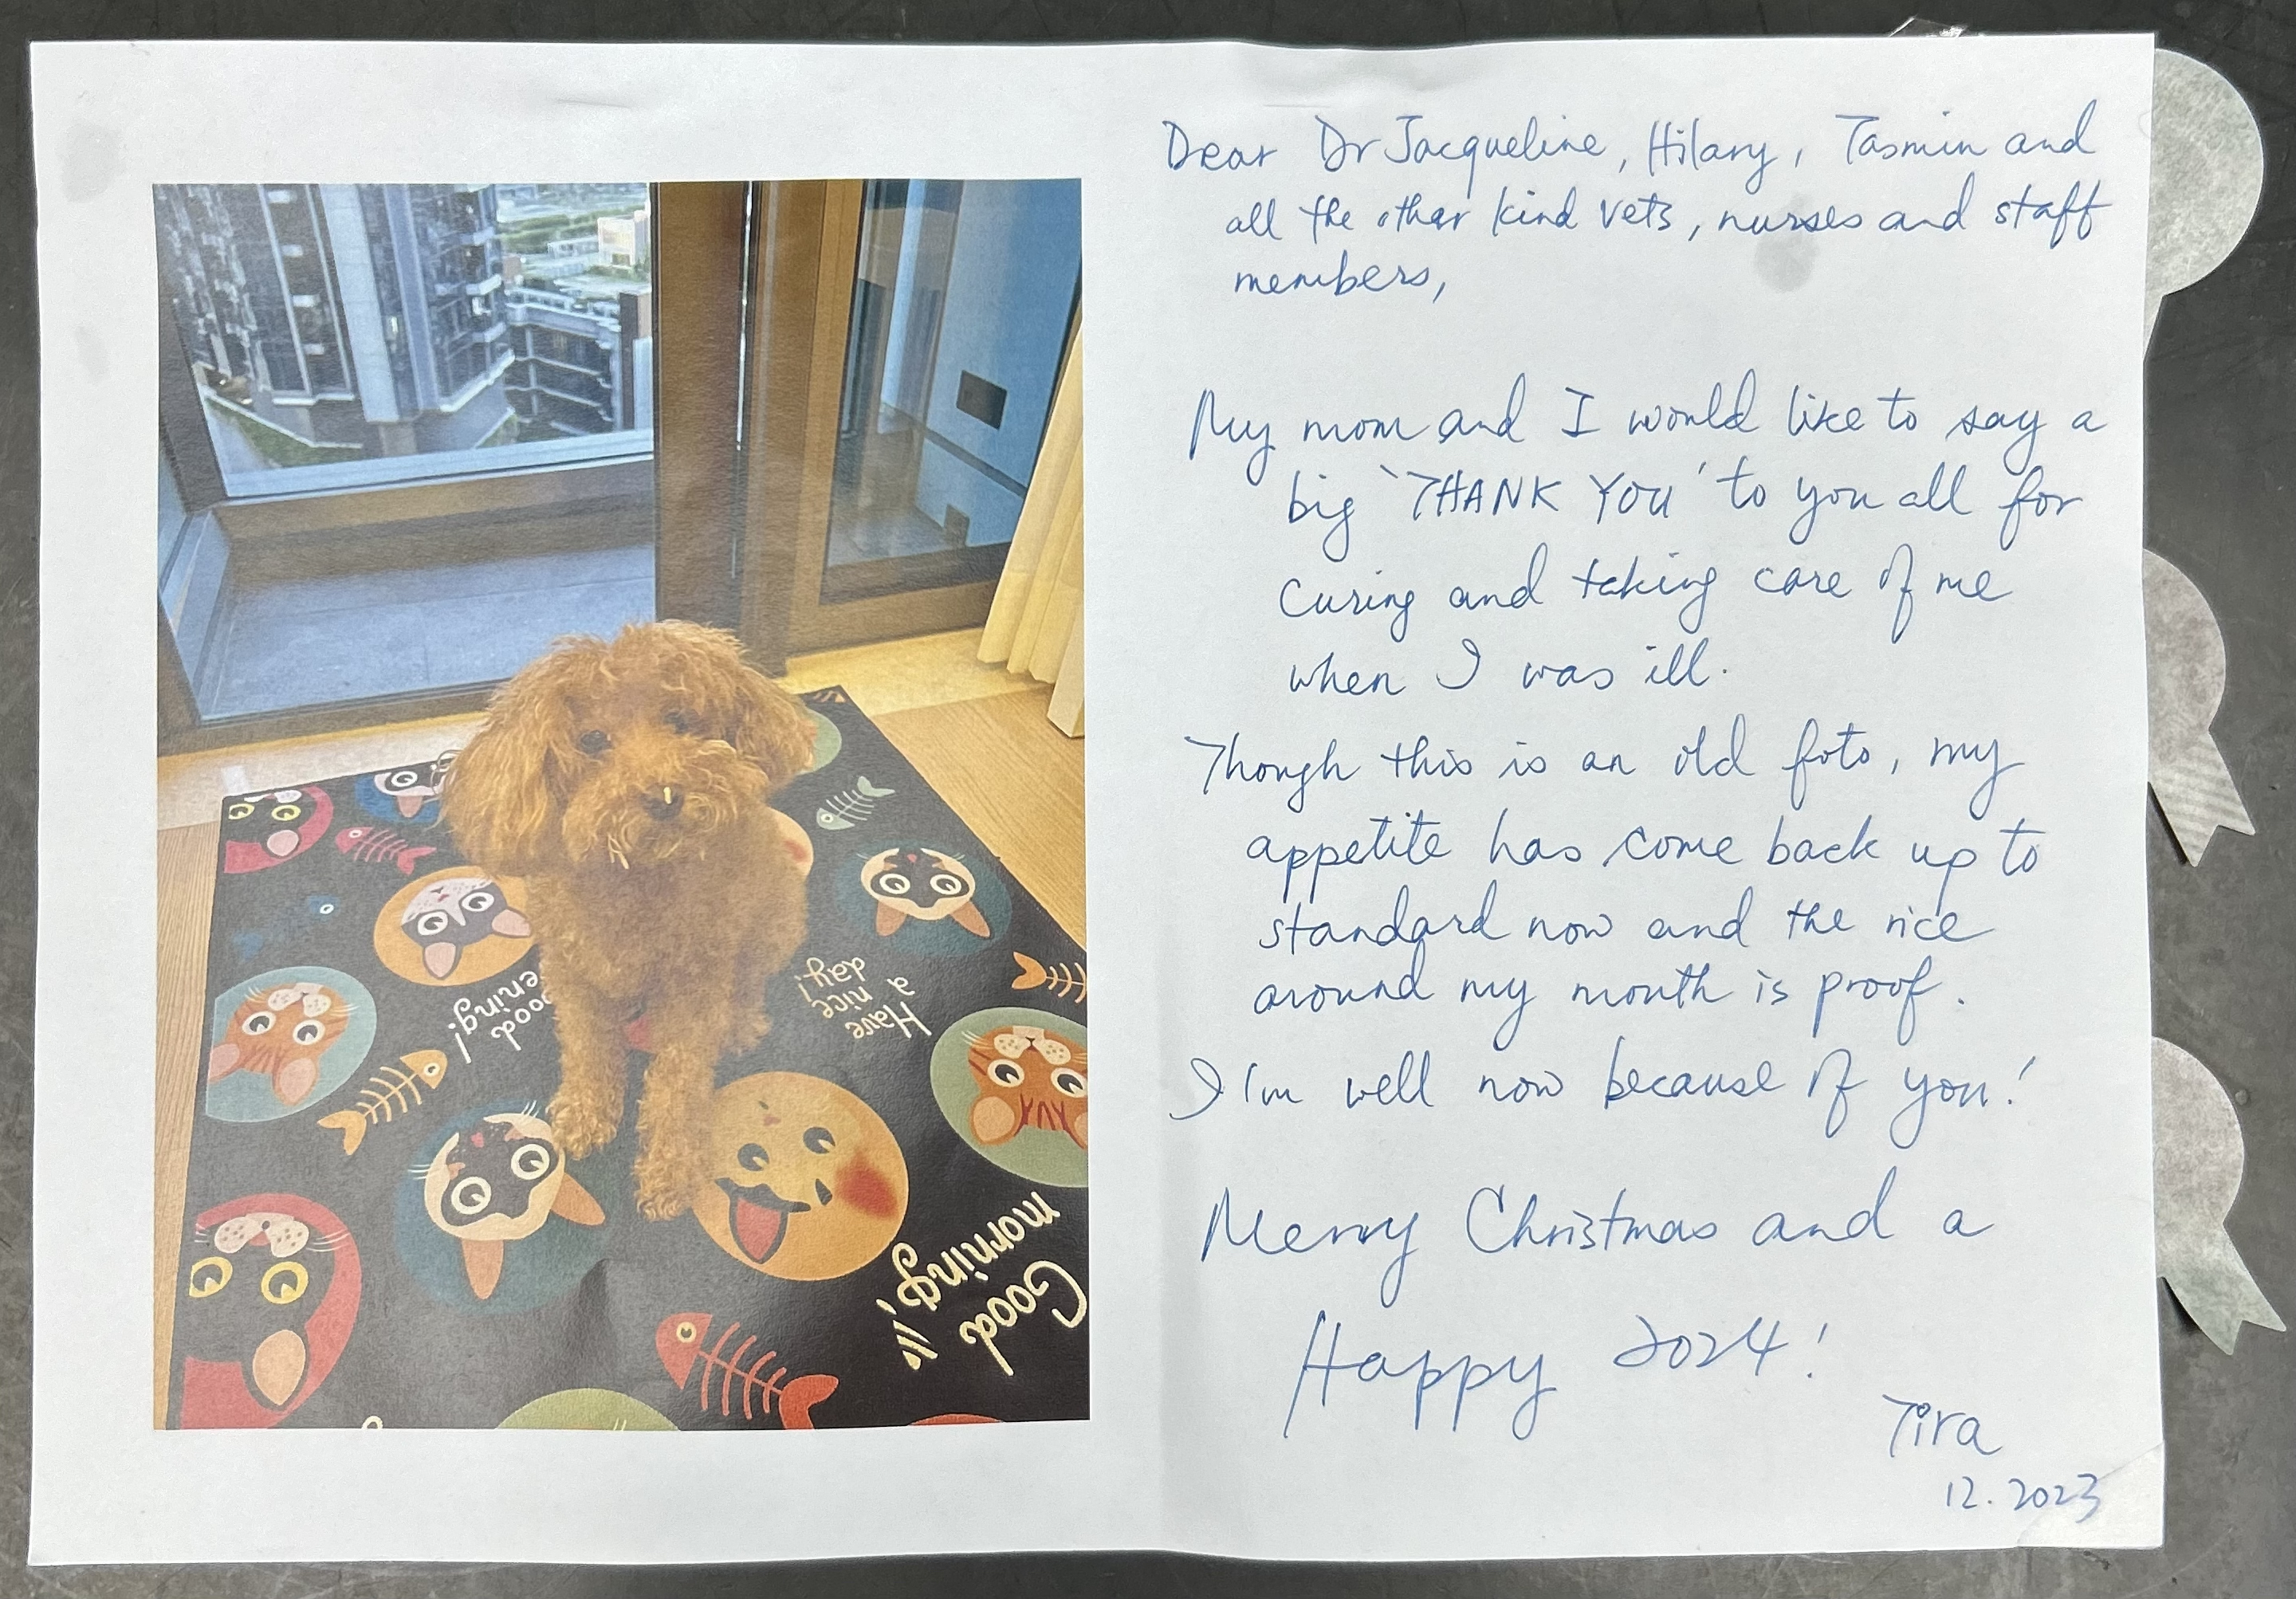 Dear Dr Jacqueline, Hilary, Tasmin and
all the other kind vets, nurses and staff
members,
My mom and I would like to say a
big 'THANK YOU' to you all for
curing and taking care of me
when I was ill.
Though this is an old foto, my
appetite has come back up to
standard now and the rice
around my mouth is proof.
I'm well now because of you!
Merry Christmas and a
Happy 2024!
Tira
12.2023
Have
a
nice
day!
ood
ening!
Good
morning!